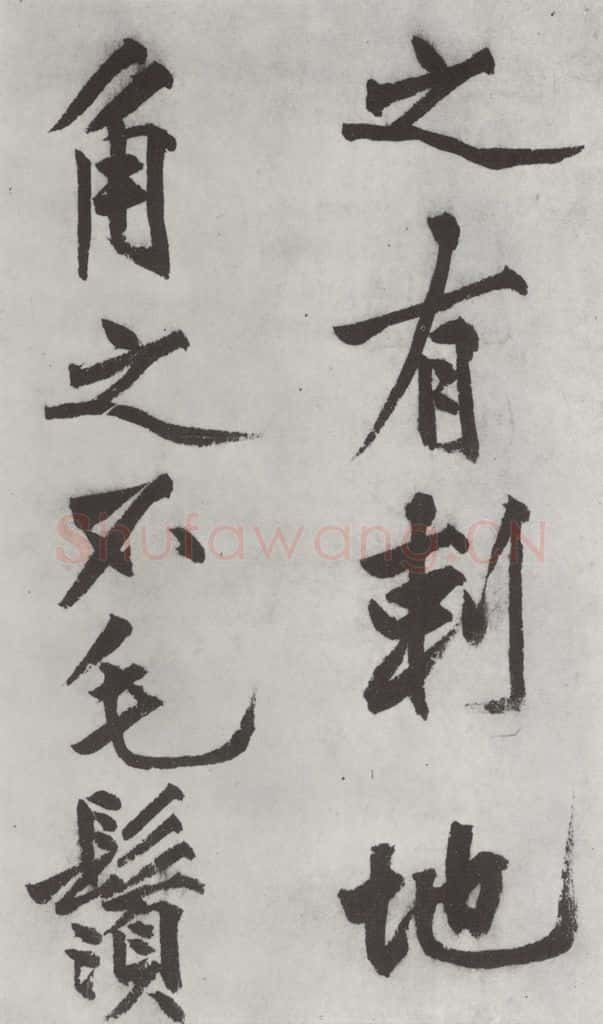 之有刺地
角之不毛鬚
Shufawang.CN